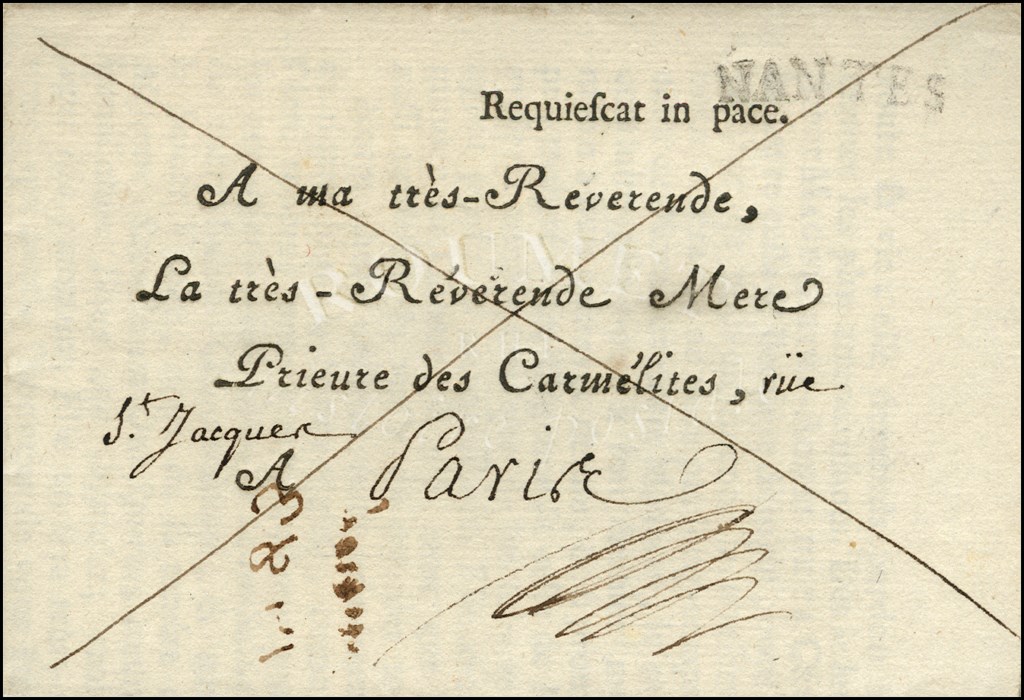 NANTES
Requieſcat in pace.
A ma très-Reverende,
La très-Révérende Mere
Prieure des Carmélites, rüe
S.t Jacques
A Paris